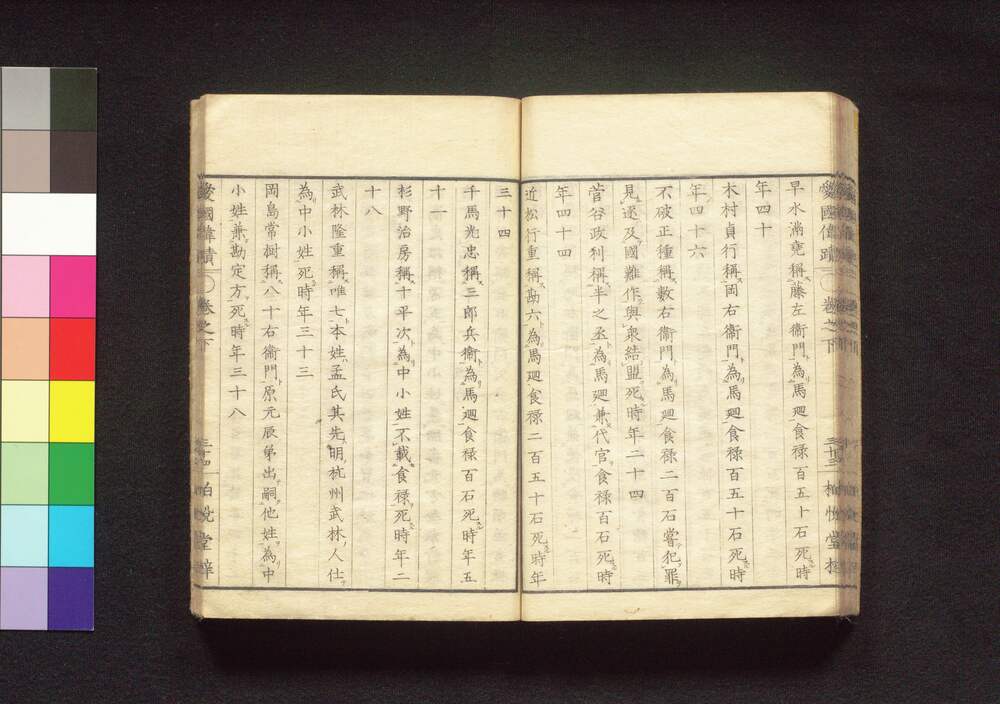 愛國偉蹟 卷之下 三十三 柏悅堂梓
早水滿堯稱藤左衞門為馬廻食祿百五十石死時
年四十
木村貞行稱岡右衞門為馬廻食祿百五十石死時
年四十六
不破正種稱數右衞門為馬廻食祿二百石嘗犯罪
見逐及國難作與衆結盟死時年二十四
菅谷政利稱半之丞為馬廻兼代官食祿百石死時
年四十四
近松行重稱勘六為馬廻食祿二百五十石死時年
三十四
千馬光忠稱三郎兵衞為馬廻食祿百石死時年五
十一
杉野治房稱十平次為中小姓不載食祿死時年二
十八
武林隆重稱唯七本姓孟氏其先明杭州武林人仕
為中小姓死時年三十三
岡島常樹稱八十右衞門原元辰弟出嗣他姓為中
小姓兼勘定方死時年三十八
愛國偉蹟 卷之下 三十四 柏悅堂梓